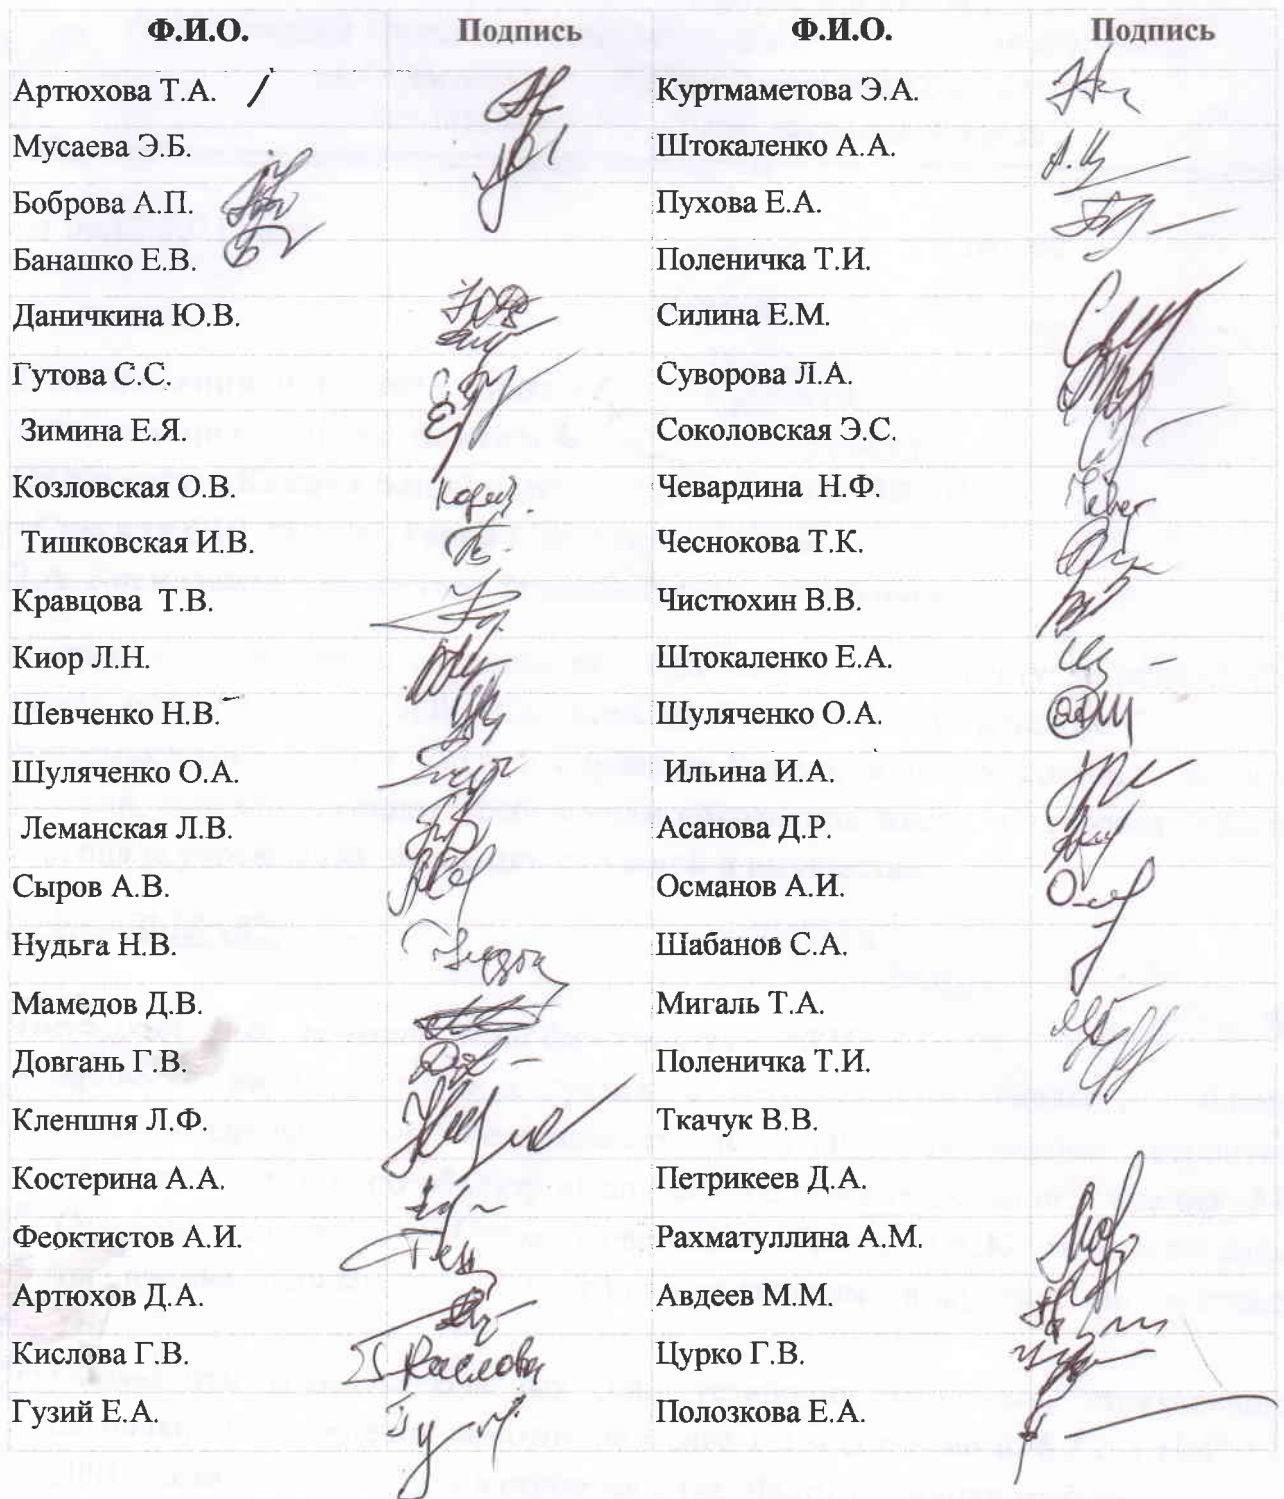 Ф.И.О. Подпись Ф.И.О. Подпись
Артюхова Т.А. Куртмаметова Э.А.
Мусаева Э.Б. Штокаленко А.А.
Боброва А.П. Пухова Е.А.
Банашко Е.В. Поленичка Т.И.
Даничкина Ю.В. Силина Е.М.
Гутова С.С. Суворова Л.А.
Зимина Е.Я. Соколовская Э.С.
Козловская О.В. Чевардина Н.Ф.
Тишковская И.В. Чеснокова Т.К.
Кравцова Т.В. Чистюхин В.В.
Киор Л.Н. Штокаленко Е.А.
Шевченко Н.В. Шуляченко О.А.
Шуляченко О.А. Ильина И.А.
Леманская Л.В. Асанова Д.Р.
Сыров А.В. Османов А.И.
Нудьга Н.В. Шабанов С.А.
Мамедов Д.В. Мигаль Т.А.
Довгань Г.В. Поленичка Т.И.
Кленшня Л.Ф. Ткачук В.В.
Костерина А.А. Петрикеев Д.А.
Феоктистов А.И. Рахматуллина А.М.
Артюхов Д.А. Авдеев М.М.
Кислова Г.В. Кислова Цурко Г.В.
Гузий Е.А. Полозкова Е.А.